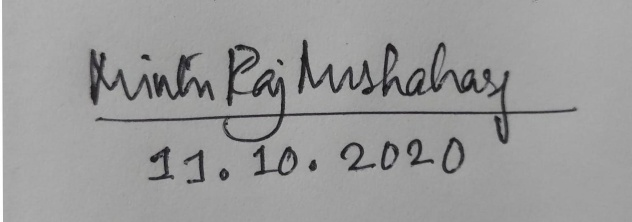 Raj Mushahary
11.10.2020